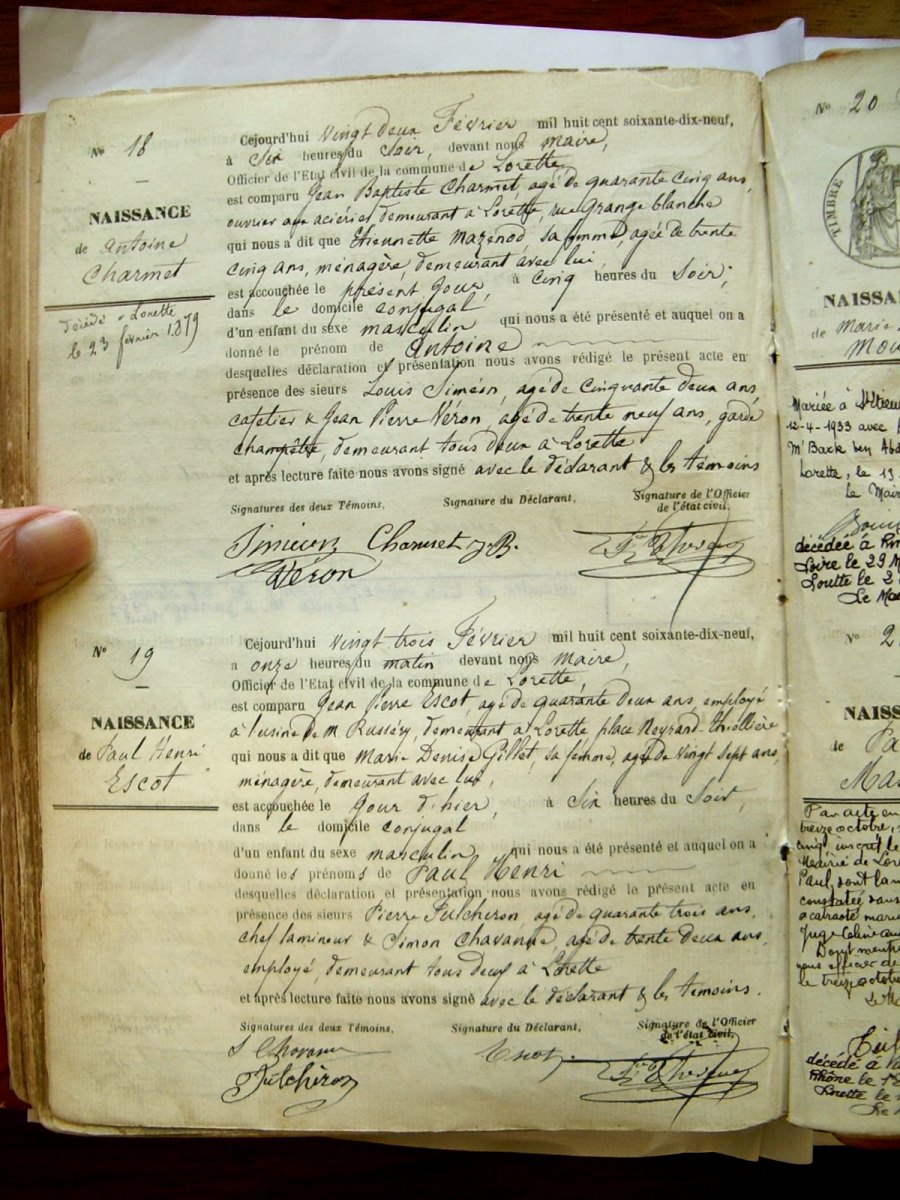 N° 18
NAISSANCE
de Antoine
Charmet
Décédé à Lorette
le 23 février 1879
Cejourd'hui vingt deux Février mil huit cent soixante-dix-neuf,
à Six heures du Soir, devant nous Maire,
Officier de l'Etat civil de la commune de Lorette
est comparu Jean Baptiste Charmet, agé de quarante cinq ans,
ouvrier aux aciéries demeurant à Lorette, rue Grange blanche
qui nous a dit que Etiennette Mazenod, sa femme, agée de trente
cinq ans, ménagère, demeurant avec lui,
est accouchée le présent jour, à cinq heures du Soir,
dans le domicile conjugal
d'un enfant du sexe masculin qui nous a été présenté et auquel on a
donné le prénom de Antoine
desquelles déclaration et présentation nous avons rédigé le présent acte en
présence des sieurs Louis Siméon, agé de cinquante deux ans
cafetier & Jean Pierre Véron, agé de trente neuf ans, garde
champêtre, demeurant tous deux à Lorette
et après lecture faite nous avons signé avec le déclarant & les témoins
Signatures des deux Témoins, Signature du Déclarant, Signature de l'Officier
de l'état civil,
Siméon Charmet J. B.
Véron
N° 19
NAISSANCE
de Paul Henri
Escot
Cejourd'hui vingt trois Février mil huit cent soixante-dix-neuf,
a onze heures du matin devant nous Maire,
Officier de l'Etat civil de la commune de Lorette,
est comparu Jean Pierre Escot, agé de quarante deux ans, employé
à l'usine de M. Russéry, demeurant à Lorette place Neyrand-Thiollière
qui nous a dit que Marie Denise Gillet, sa femme, agée de vingt sept ans,
ménagère, demeurant avec lui,
est accouchée le jour d'hier, à Six heures du Soir,
dans le domicile conjugal
d'un enfant du sexe masculin qui nous a été présenté et auquel on a
donné les prénoms de Paul Henri
desquelles déclaration et présentation nous avons rédigé le présent acte en
présence des sieurs Pierre Fulcheron, agé de quarante trois ans,
chef lamineur & Simon Chavanne, agé de trente deux ans,
employé, demeurant tous deux à Lorette
et après lecture faite nous avons signé avec le déclarant & les témoins.
Signatures des deux Témoins, Signature du Déclarant, Signature de l'Officier
de l'état civil,
S Chavanne Escot
Fulchéron
N° 20
TIMBRE
NAISSA
de Marie
Mou
Mariée à
12-4-1933 avec
M' Bark ben
Lorette, le 13
Le Mair
décédée à
Loire le 29 M
Lorette le 2
Le Ma
N° 2
NAISS
de Pa
Ma
Par acte en
treize octobre,
cinq, inscrit le
Mairie de Lor
Paul, dont la n
constatée dans
a contracté maria
Juge Céline
Dont mention
nous officier de
le treize octobre
Le M
décédé à
Rhône le 1
Lorette le
Le M